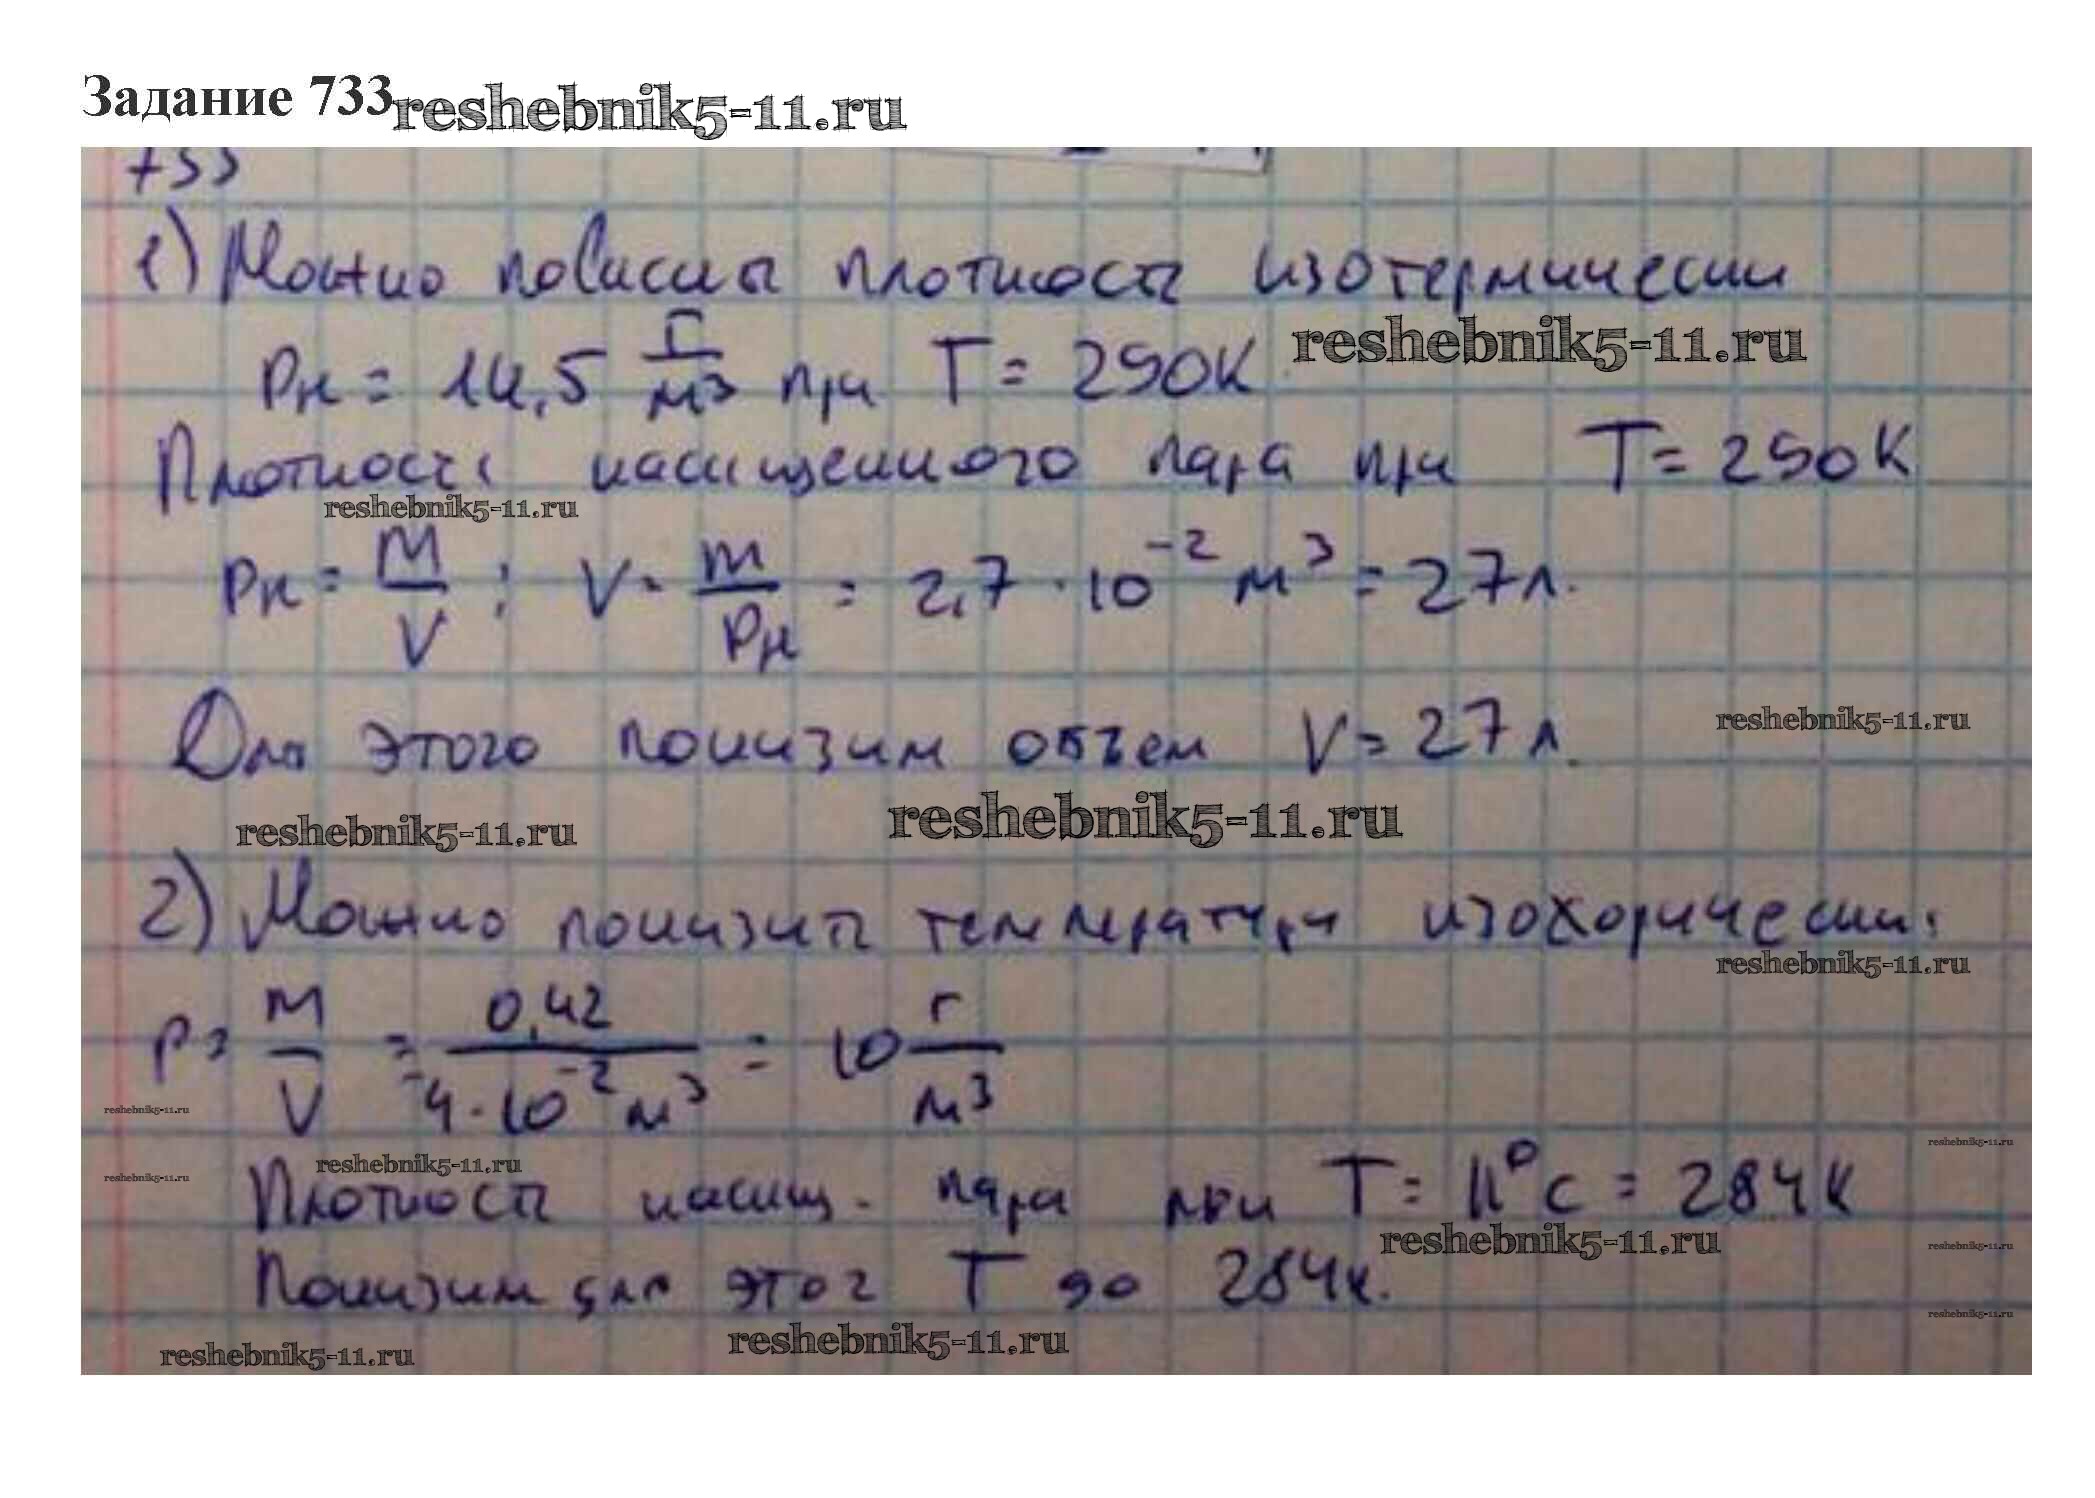 Задание 733 reshebnik5-11.ru
733
1) Можно повысить плотность изотермически
reshebnik5-11.ru
ρн = 14,5 г/м³ при T = 290К
Плотность насыщенного пара при T = 290К
reshebnik5-11.ru
ρн = m/V; V = m/ρн = 2,7 · 10⁻² м³ = 27 л.
Для этого понизим объем V = 27 л.
reshebnik5-11.ru
reshebnik5-11.ru reshebnik5-11.ru
2) Можно понизить температуру изохорически:
reshebnik5-11.ru
ρ = m/V = 0,42/4·10⁻² м³ = 10 г/м³
reshebnik5-11.ru reshebnik5-11.ru
reshebnik5-11.ru reshebnik5-11.ru
Плотность насыщ. пара при T = 11°C = 284К
reshebnik5-11.ru reshebnik5-11.ru
Понизим для этог T до 284К.
reshebnik5-11.ru
reshebnik5-11.ru reshebnik5-11.ru